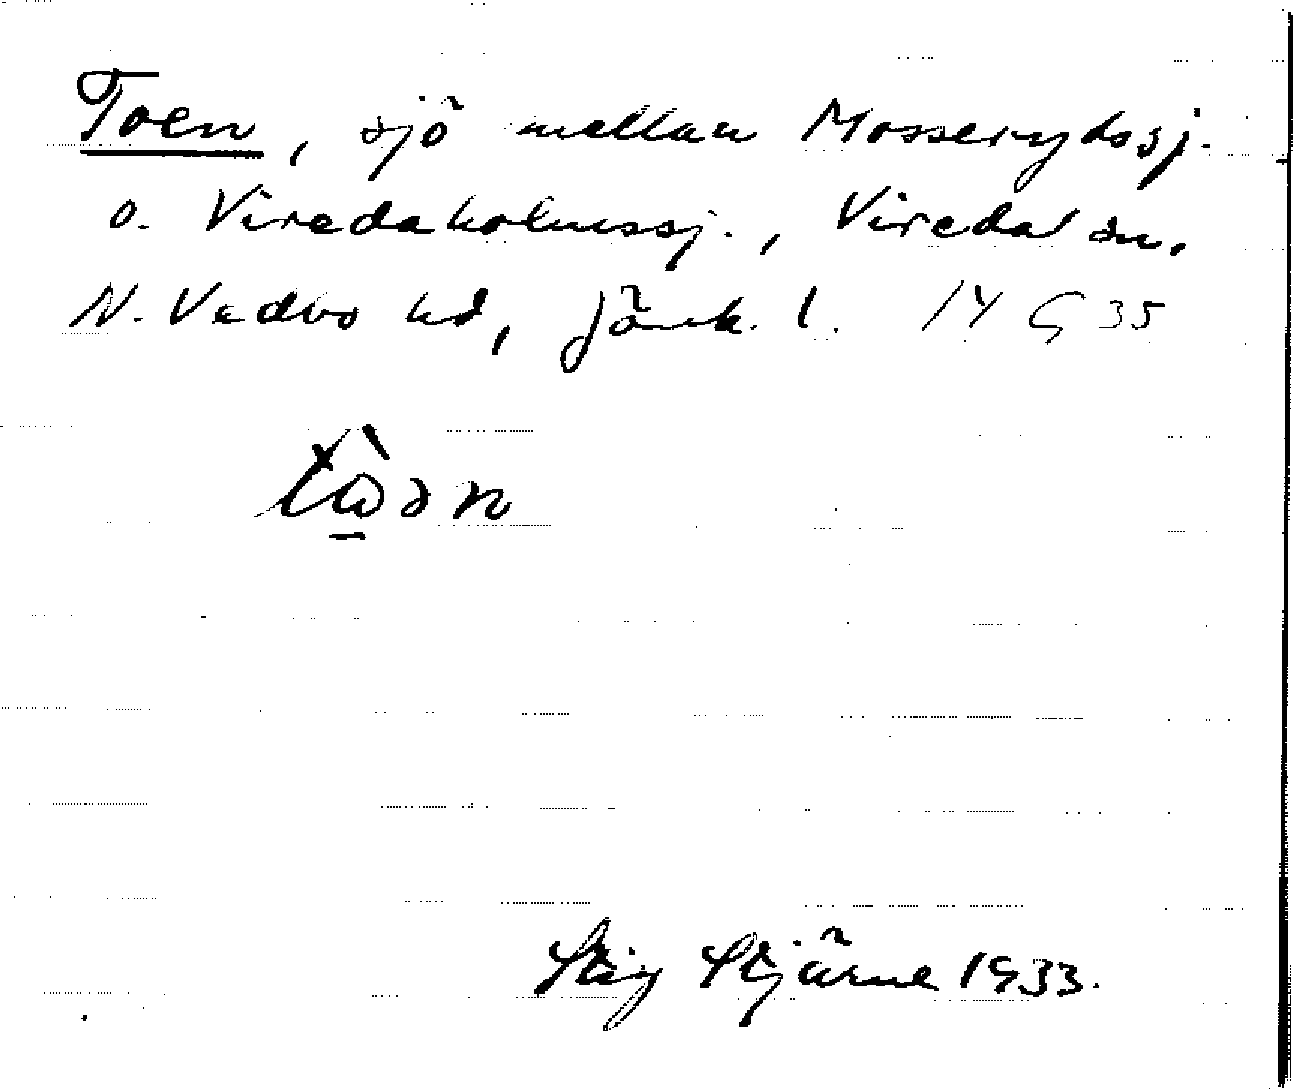 Toen, sjö mellan Mosserydssj.
o. Viredaholmssj., Vireda sn,
N. Vedbo hd, Jönk. l. 14 G 35
Stig Stjärne 1933.